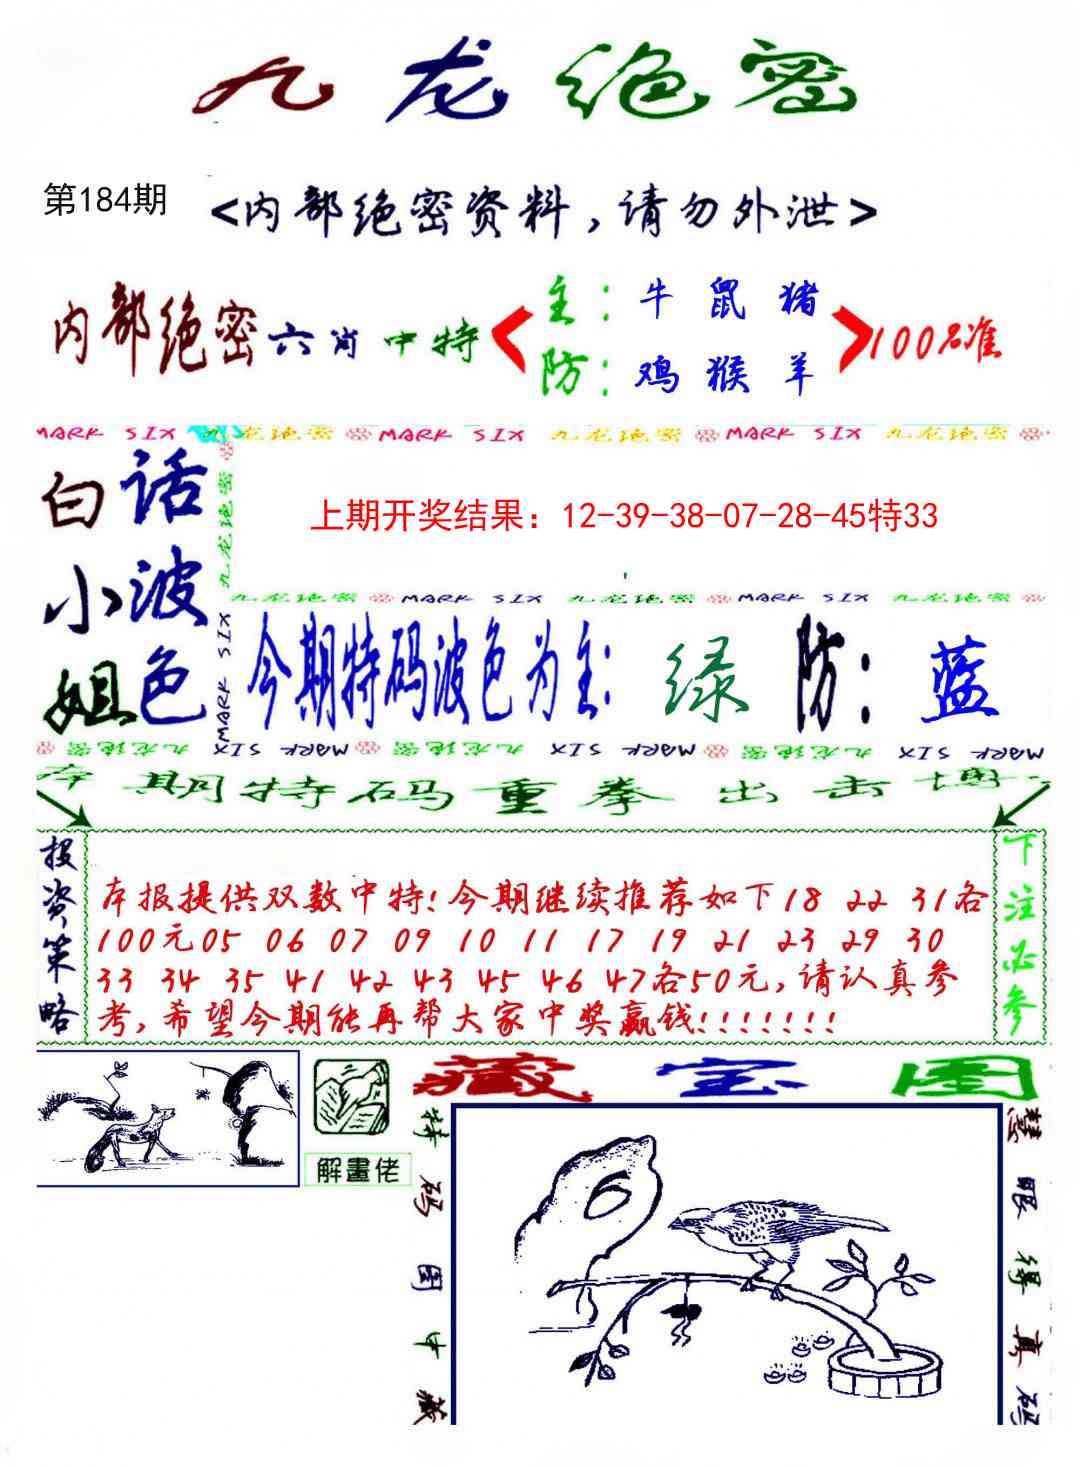 九龙绝密
第184期
<内部绝密资料,请勿外泄>
内部绝密六肖中特
主:牛 鼠 猪
防:鸡 猴 羊
100%准
MARK SIX 九龙绝密 MARK SIX 九龙绝密 MARK SIX 九龙绝密
白话
小波
姐色
九龙绝密
MARK SIX
上期开奖结果：12-39-38-07-28-45特33
九龙绝密 MARK SIX 九龙绝密 MARK SIX 九龙绝密
今期特码波色为主:绿 防:蓝
九龙绝密 MARK SIX MARK SIX 九龙绝密 MARK SIX MARK SIX 九龙绝密 MARK SIX MARK SIX
本期特码重拳出击博
投资策略
本报提供双数中特!今期继续推荐如下18 22 31各
100元05 06 07 09 10 11 17 19 21 23 29 30
33 34 35 41 42 43 45 46 47各50元,请认真参
考,希望今期能再帮大家中奖赢钱!!!!!!!
下注必参
解畫佬
藏宝图
特码图中藏
慧眼得真码